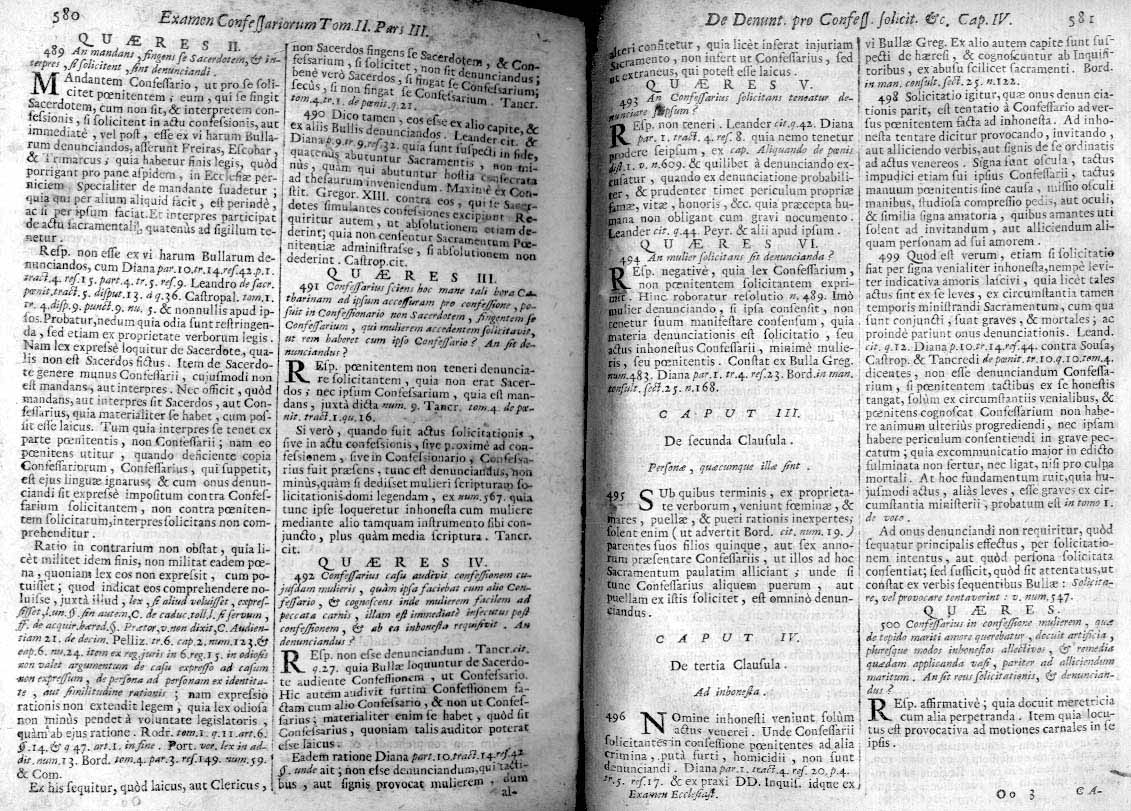 580 Examen Confessariorum Tom. II. Pars III.
QUÆRES II.
489 An mandans, fingens se Sacerdotem, & in-
terpres, si solicitent, sint denunciandi.
MAndantem Confessario, ut pro se soli-
citet pœnitentem; eum, qui se fingit
Sacerdotem, cum non sit, & interpretem con-
fessionis, si solicitent in actu confessionis, aut
immediatè, vel post, esse ex vi harum Bulla-
rum denunciandos, asserunt Freiras, Escobar,
& Trimarcus; quia habetur finis legis, quòd
porrigant pro pane aspidem, in Ecclesiæ per-
niciem. Specialiter de mandante suadetur;
quia qui per alium aliquid facit, est perindè,
ac si per ipsum faciat. Et interpres participat
de actu sacramentali, quatenùs ad sigillum te-
netur.
Resp. non esse ex vi harum Bullarum de-
nunciandos, cum Diana par. 10. tr. 14. res. 42. p. 1.
tract. 4. res. 15. part. 4. tr. 5. res. 9. Leandro de sacr.
pœnit. tract. 5. disput. 13. à q. 36. Castropal. tom. 1.
tr. 4. disp. 9. punct. 9. nu. 5. & nonnullis apud ip-
sos. Probatur, nedum quia odia sunt restringen-
da, sed etiam ex proprietate verborum legis.
Nam lex expressè loquitur de Sacerdote, qua-
lis non est Sacerdos fictus. Item de Sacerdo-
te genere munus Confessarii, cujusmodi non
est mandans, aut interpres. Nec officit, quòd
mandans, aut interpres sit Sacerdos, aut Con-
fessarius, quia materialiter se habet, cum pos-
sit esse laicus. Tum quia interpres se tenet ex
parte pœnitentis, non Confessarii; nam eo
pœnitens utitur, quando deficiente copia
Confessariorum, Confessarius, qui suppetit,
est ejus linguæ ignarus; & cum onus denun-
ciandi sit expressè impositum contra Confes-
sarium solicitantem, non contra pœniten-
tem solicitatum, interpres solicitans non com-
prehenditur.
Ratio in contrarium non obstat, quia li-
cèt militet idem finis, non militat eadem pœ-
na, quoniam lex eos non expressit, cum po-
tuisset; quod indicat eos comprehendere no-
luisse, juxtà illud, lex, si aliud voluisset, expres-
sisset, l. un. §. sin autem, C. de caduc. toll. l. si servum,
ff. de acquir. hæred. §. Prætor, v. non dixit, C. Audien-
tiam 21. de decim. Pelliz. tr. 6. cap. 2. num. 123. &
cap. 6. nu. 24. item ex reg. juris in 6. reg. 15. in odiosis
non valet argumentum de casu expresso ad casum
non expressum, de persona ad personam ex identita-
te, aut similitudine rationis; nam expressio
rationis non extendit legem, quia lex odiosa
non minùs pendet à voluntate legislatoris,
quàm ab ejus ratione. Rodr. tom. 1. q. 11. art. 6.
§. 14. & q 47. art. 1. in fine. Port. ver. lex in ad-
dit. num. 13. Bord. tom. 4. par. 3. res. 149. num. 59.
& Com.
Ex his sequitur, quòd laicus, aut Clericus,
non Sacerdos fingens se Sacerdotem, & Con-
fessarium, si solicitet, non sit denunciandus;
benè verò Sacerdos, si fingat se Confessarium;
secùs, si non fingat se Confessarium. Tancr.
tom. 4. tr. 1. de pœnit. q. 21.
490 Dico tamen, eos esse ex alio capite, &
ex aliis Bullis denunciandos. Leander cit. &
Diana p. 9. tr. 9. res. 32. quia sunt suspecti in fide,
quatenùs abutuntur Sacramentis, non mi-
nùs, quàm qui abutuntur hostia consecrata
ad thesaurum inveniendum. Maximè ex Con-
stit. Gregor. XIII. contra eos, qui se Sacer-
dotes simulantes confessiones excipiunt. Re-
quiritur autem, ut absolutionem etiam de-
derint; quia non censentur Sacramentum Pœ-
nitentiæ administrasse, si absolutionem non
dederint. Castrop. cit.
QUÆRES III.
491 Confessarius sciens hoc mane tali hora Ca-
tharinam ad ipsum accessuram pro confessione, po-
suit in Confessionario non Sacerdotem, fingentem se
Confessarium, qui mulierem accedentem solicitavit,
ut rem haberet cum ipso Confessario? An sit de-
nunciandus?
REsp. pœnitentem non teneri denuncia-
re solicitantem, quia non erat Sacer-
dos; nec ipsum Confessarium, quia est man-
dans, juxtà dicta num. 9. Tancr. tom. 4. de pœ-
nit. tract. 1. qu. 16.
Si verò, quando fuit actus solicitationis,
sive in actu confessionis, sive proximè ad con-
fessionem, sive in Confessionario, Confessa-
rius fuit præsens, tunc est denunciandus, non
minùs, quàm si dedisset mulieri scripturam so-
licitationis domi legendam, ex num. 567. quia
tunc ipse loqueretur inhonesta cum muliere
mediante alio tamquam instrumento sibi con-
juncto, plus quàm media scriptura. Tancr.
cit.
QUÆRES IV.
492 Confessarius casu audivit confessionem cu-
jusdam mulieris, quàm ipsa faciebat cum alio Con-
fessario, & cognoscens inde mulierem facilem ad
peccata carnis, illam est immediatè insecutus post
confessionem, & ab ea inhonesta requisivit. An
denunciandus?
REsp. non esse denunciandum. Tancr. cit.
q. 27. quia Bullæ loquuntur de Sacerdo-
te audiente Confessionem, ut Confessario.
Hic autem audivit furtim Confessionem fa-
ctam cum alio Confessario, & non ut Confes-
sarius; materialiter enim se habet, quòd sit
Confessarius, quoniam talis auditor poterat
esse laicus.
Eadem ratione Diana part. 10. tract. 14. res. 42
§. unde ait; non esse denunciandum, qui tacti-
bus, aut signis provocat mulierem, dum
al-
De Denunt. pro Confess. solicit. &c. Cap. IV. 581
alteri confitetur, quia licèt inferat injuriam
Sacramento, non infert ut Confessarius, sed
ut extraneus, qui potest esse laicus.
QUÆRES V.
493 An Confessarius solicitans teneatur de-
nunciare seipsum?
REsp. non teneri. Leander cit. q. 42. Diana
par. 1. tract. 4. res. 8. quia nemo tenetur
prodere seipsum, ex cap. Aliquando de pœnis
dist. 1. v. n. 609. & quilibet à denunciando ex-
cusatur, quando ex denunciatione probabili-
ter, & prudenter timet periculum propriæ
famæ, vitæ, honoris, &c. quia præcepta hu-
mana non obligant cum gravi nocumento.
Leander cit. q. 44. Peyr. & alii apud ipsum.
QUÆRES VI.
494 An mulier solicitans sit denuncianda?
REsp. negativè, quia lex Confessarium,
non pœnitentem solicitantem expri-
mit. Hinc roboratur resolutio n. 489. Imò
mulier denunciando, si ipsa consensit, non
tenetur suum manifestare consensum, quia
materia denunciationis est solicitatio, seu
actus inhonestus Confessarii, minimè mulie-
ris, seu pœnitentis. Constat ex Bulla Greg.
num. 483. Diana par. 1. tr. 4. res. 23. Bord. in man.
consult. sect. 25. n. 168.
CAPUT III.
De secunda Clausula.
Personæ, quæcumque illæ sint.
495 SUb quibus terminis, ex proprieta-
te verborum, veniunt fœminæ, &
mares, puellæ, & pueri rationis inexpertes;
solent enim (ut advertit Bord. cit. num. 19.)
parentes suos filios quinque, aut sex anno-
rum præsentare Confessariis, ut illos ad hoc
Sacramentum paulatim alliciant; unde si
tunc Confessarius aliquem puerum, aut
puellam ex istis solicitet, est omninò denun-
ciandus.
CAPUT IV.
De tertia Clausula.
Ad inhonesta.
496 NOmine inhonesti veniunt solùm
actus venerei. Unde Confessarii
solicitantes in confessione pœnitentes ad alia
crimina, putà furti, homicidii, non sunt
denunciandi. Diana par. 1. tract. 4. res. 20. p. 4.
tr. 5. res. 17. & ex praxi DD. Inquis. idque ex
Examen Ecclesiast.
vi Bullæ Greg. Ex alio autem capite sunt sus-
pecti de hæresi, & cognoscuntur ab Inquisi-
toribus, ex abusu scilicet sacramenti. Bord.
in man. consult. sect. 25. n. 122.
498 Solicitatio igitur, quæ onus denuncia-
tionis parit, est tentatio à Confessario adver-
sus pœnitentem facta ad inhonesta. Ad inho-
nesta tentare dicitur provocando, invitando,
aut alliciendo verbis, aut signis de se ordinatis
ad actus venereos. Signa sunt oscula, tactus
impudici etiam sui ipsius Confessarii, tactus
manuum pœnitentis sine causa, missio osculi
manibus, studiosa compressio pedis, aut oculi,
& similia signa amatoria, quibus amantes uti
solent ad invitandum, aut alliciendum ali-
quam personam ad sui amorem.
499 Quod est verum, etiam si solicitatio
fiat per signa venialiter inhonesta, nempè levi-
ter indicativa amoris lascivi, quia licèt tales
actus sint ex se leves, ex circumstantia tamen
temporis ministrandi Sacramentum, cum qua
sunt conjuncti, sunt graves, & mortales; ac
proindè pariunt onus denunciationis. Leand.
cit. q. 12. Diana p. 10. tr. 14. res. 44. contra Sousa,
Castrop. & Tancredi de pœnit. tr. 10. q. 10. tom. 4.
dicentes, non esse denunciandum Confessa-
rium, si pœnitentem tactibus ex se honestis
tangat, solùm ex circumstantiis venialibus, &
pœnitens cognoscat Confessarium non habe-
re animum ulteriùs progrediendi, nec ipsam
habere periculum consentiendi in grave pec-
catum; quia excommunicatio major in edicto
fulminata non fertur, nec ligat, nisi pro culpa
mortali. At hoc fundamentum ruit, quia hu-
jusmodi actus, aliàs leves, esse graves ex cir-
cumstantia ministerii; probatum est in tomo 1.
de voto.
Ad onus denunciandi non requiritur, quòd
sequatur principalis effectus, per solicitatio-
nem intentus, aut quòd persona solicitata
consentiat; sed sufficit, quòd sit attentatus, ut
constat ex verbis sequentibus Bullæ: Solicita-
re, vel provocare tentaverint: v. num. 547.
QUÆRES.
500 Confessarius in confessione mulierem, quæ
de tepido mariti amore querebatur, docuit artificia,
pluresque modos inhonestos allectivos, & remedia
quædam applicanda vasi, pariter ad alliciendum
maritum. An sit reus solicitationis, & denuncian-
dus?
REsp. affirmativè; quia docuit meretricia
cum alia perpetranda. Item quia locu-
tus est provocativa ad motiones carnales in se
ipsis.
Oo 3 CA-